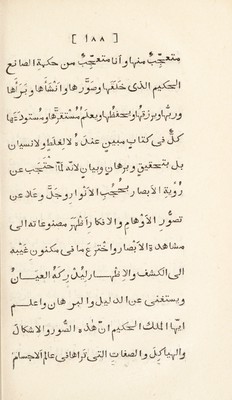 [ ١٨٨ ]
متعجّبٌ منها وانا متعجّبٌ من حكمة الصانع
الحكيم الذى خلقها وصوّرها وانشأها وبرأها
وربّها ويرزقها ويحفظها ويعلم مستقرّها ومستودعها
كلٌّ فى كتابٍ مبينٍ عندهٗ لا لغلطٍ ولا نسيان
بل بتحقيقٍ وبرهانٍ وبيان لانه لمّا احتجب عن
رؤية الابصار بحجب الانوار وجلّ وعلا عن
تصوّر الاوهام والافكار أظهر مصنوعاته الى
مشاهدة الابصار واخترع ما فى مكنون غيبه
الى الكشف والاظهار ليدركه العيان
ويستغنى عن الدليل والبرهان واعلم
ايّها الملك الحكيم انّ هذه الصُور والاشكال
والهياكل والصفات التى تراها فى عالم الاجسام